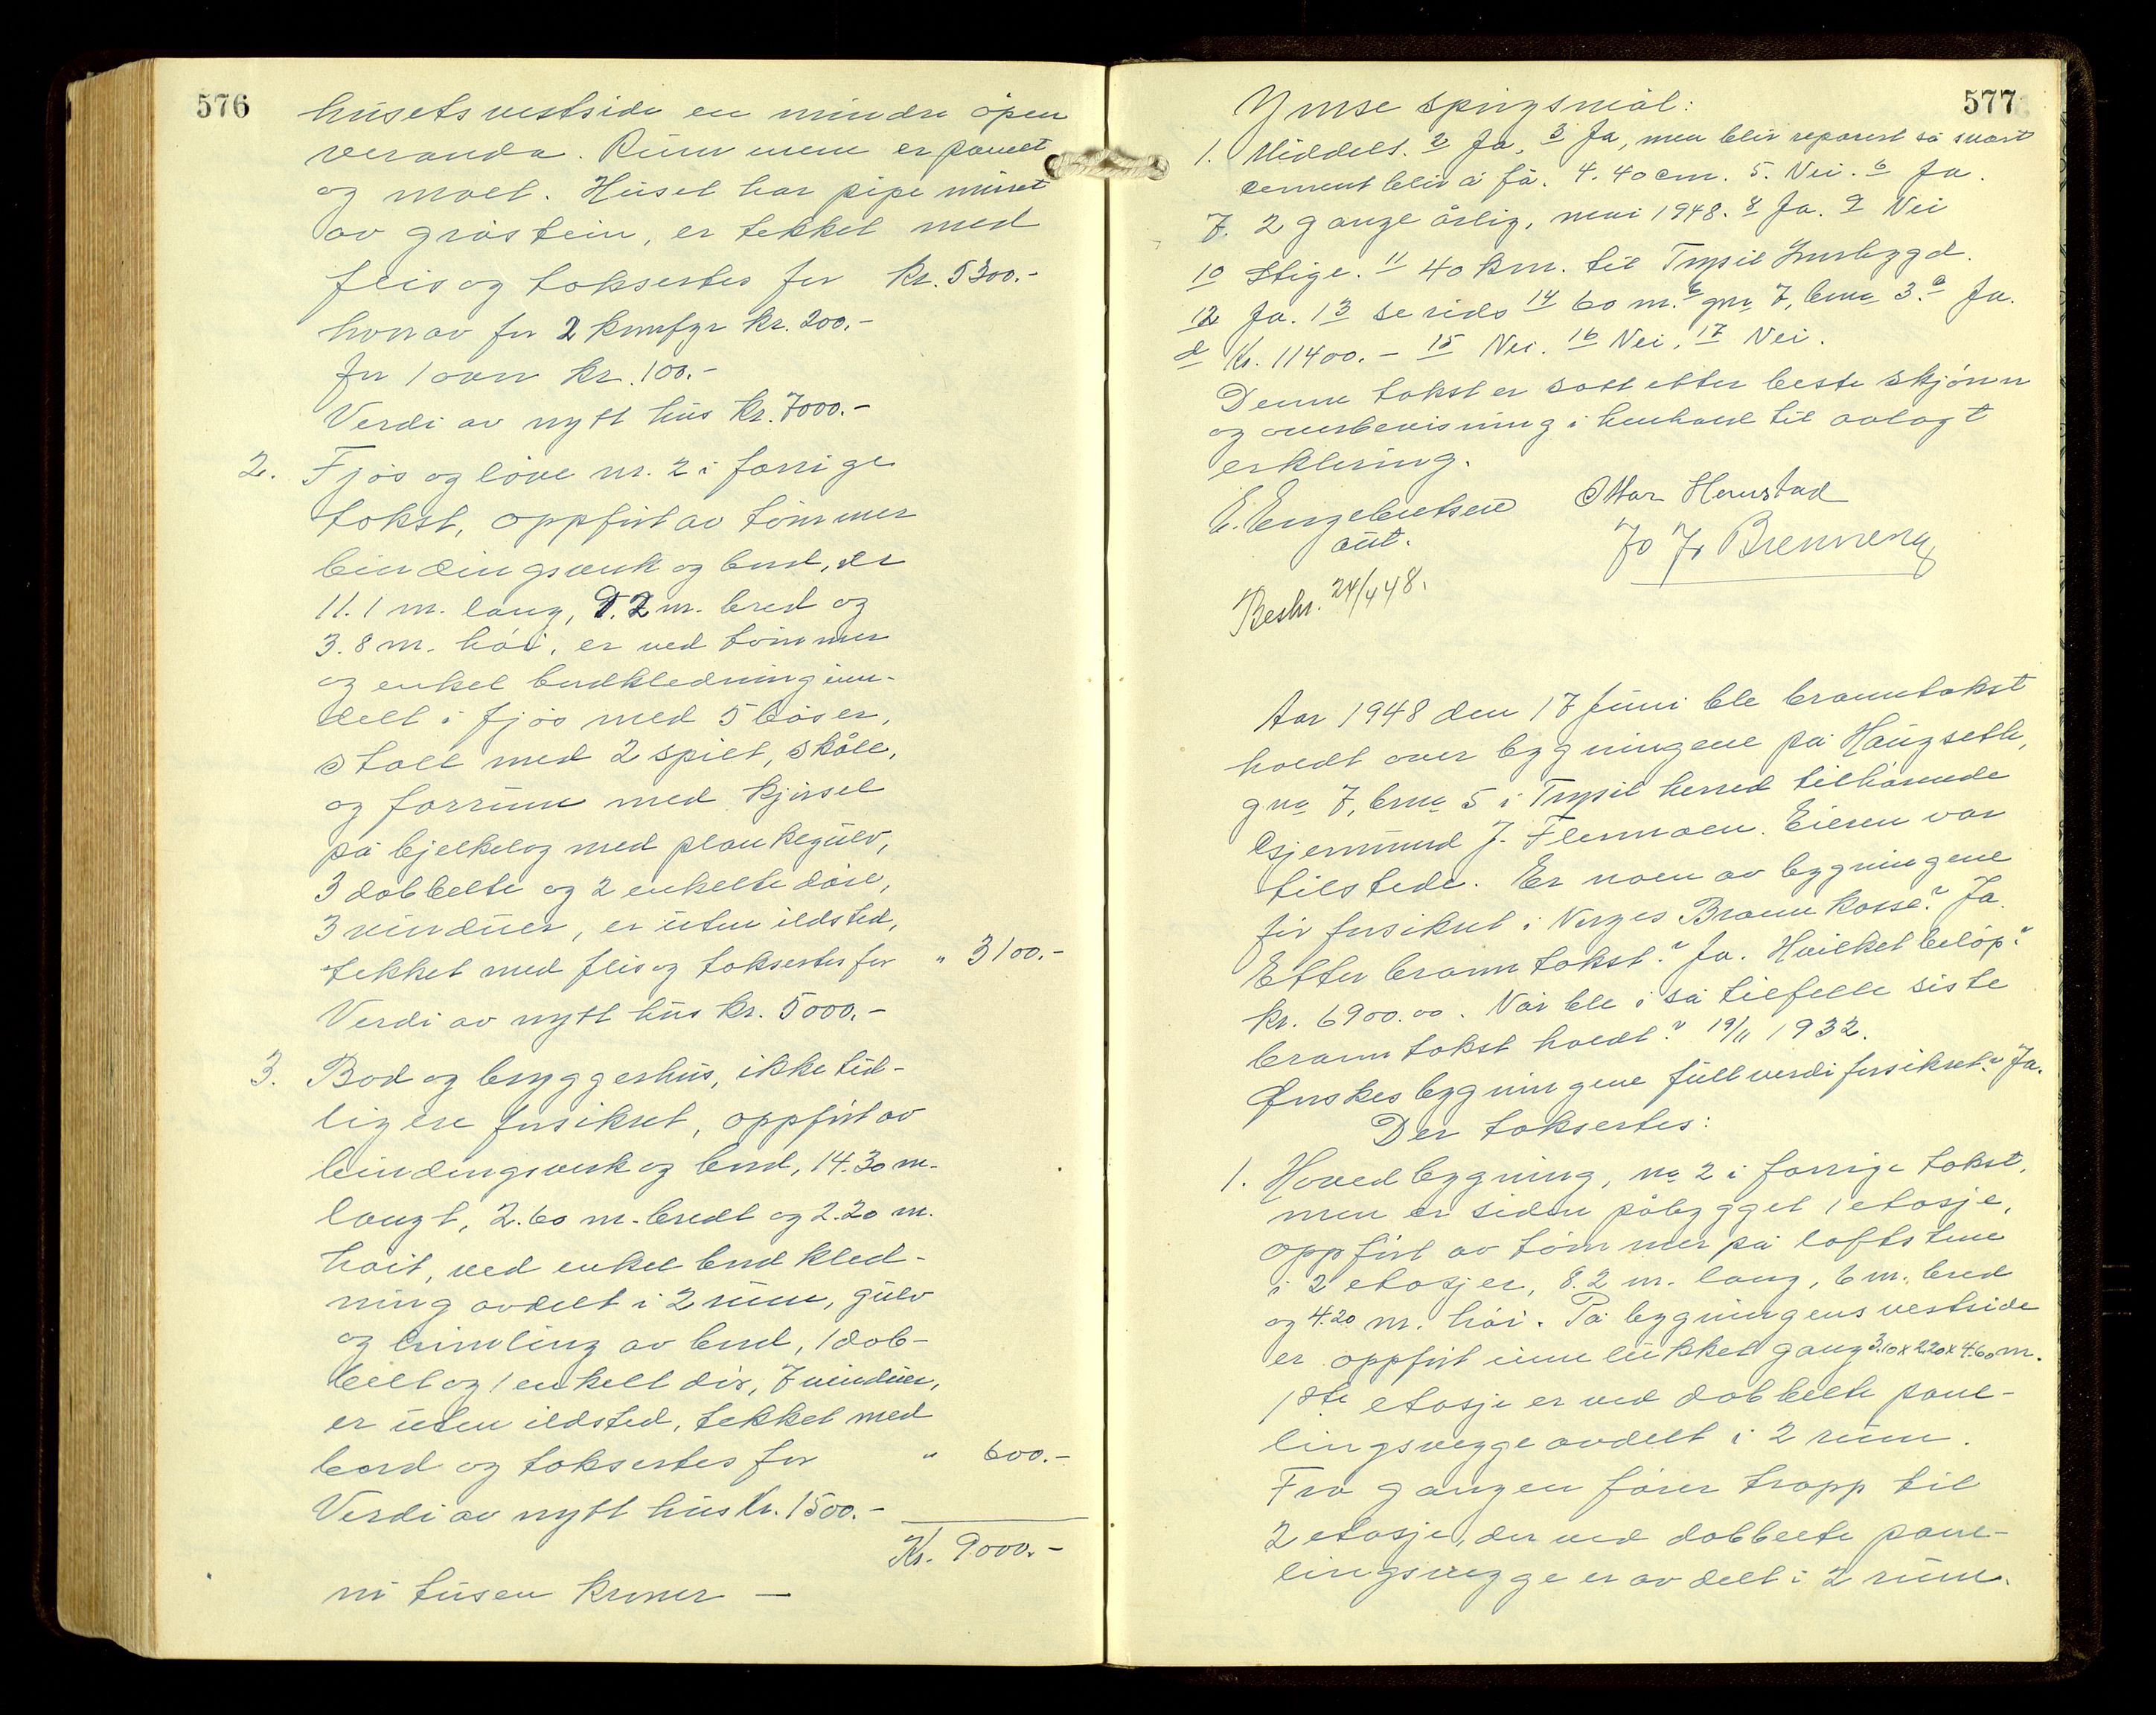 576
husets vestside en mindre åpen
veranda. Rummene er panelt
og malt. Huset har pipe muret
av gråstein, er tekket med
flis og takseres for kr. 5300.-
hvorav for 2 komfyr kr. 200.-
for 1 ovn kr. 100.-
Verdi av nytt hus kr. 7000.-
2. Fjøs og løve nr. 2 i forrige
takst, oppført av tømmer
bindingsverk og bord, er
11.1 m. lang, 9.2 m. bred og
3.8 m. høi, er ved tømmer
og enkel bordkledning inn-
delt i fjøs med 5 båser,
stall med 2 spilt, skåle,
og forrum med kjørsel
på bjelkelag med plankegulv,
3 dobbelte og 2 enkelte døre,
3 vinduer, er uten ildsted,
tekket med flis og taksertes for " 3100.-
Verdi av nytt hus kr. 5000.-
3. Bod og bryggerhus, ikke tid-
ligere forsikret, oppført av
bindingsverk og bord, 14.30 m.
langt, 2.60 m. bredt og 2.20 m.
høit, ved enkel bordkled-
ning avdelt i 2 rum, gulv
og himling av bord, 1 dob-
belt og 1 enkelt dør, 7 vinduer,
er uten ildsted, tekket med
bord og taksertes for " 600.-
Verdi av nytt hus kr. 1500.-
Kr. 9000.-
ni tusen kroner —
577
Ymse spørgsmål:
1. Middels. 2 Ja, 3 Ja, men blir reparert så snart
cement blir å få. 4. 40 cm. 5. Nei. 6 Ja.
7. 2 gange årlig, mai 1948. 8 Ja. 9 Nei
10 Stige. 11 40 km. til Trysil Innbygd.
12 Ja. 13 se rids 14 60 m. b gnr 7, bnr 3. c Ja.
d Kr. 11400.- 15 Nei. 16 Nei, 17 Nei.
Denne takst er satt etter beste skjønn
og overbevisning i henhold til avlagt
erklering.
E. Engebretsen Ottar Hemstad
aut. Jo Jo Brenneng
Beskr. 24/4 48.
Aar 1948 den 17 juni ble branntakst
holdt over bygningene på Haugseth,
gnr 7, bnr 5 i Trysil herred tilhørende
Gjermund J. Flermoen. Eieren var
tilstede. Er noen av bygningene
før forsikret i Norges Brannkasse? Ja.
Etter branntakst? Ja. Hvilket beløp?
kr. 6900.00. Når ble i så tilfelle siste
branntakst holdt? 19/11 1932.
Ønskes bygningene fullverdiforsikret? Ja.
Der taksertes:
1. Hovedbygning, nr 2 i forrige takst,
men er siden påbygget 1 etasje,
oppført av tømmer på loftstue
i 2 etasjer, 8.2 m. lang, 6 m. bred
og 4.20 m. høi. På bygningens vestside
er oppført innelukket gang 3.10 x 2.20 x 4.60 m.
1ste etasje er ved dobbelte pane-
lingsvegge avdelt i 2 rum.
Fra gangen fører trapp til
2 etasje, der ved dobbelte pane-
lingsvegge er avdelt i 2 rum.